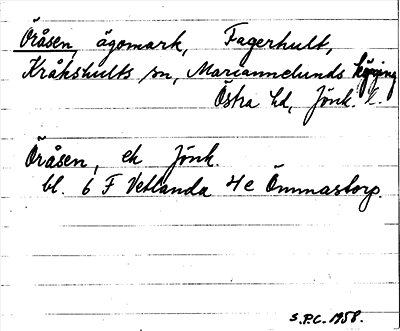 Öråsen, ägomark, Fagerhult,
Kråkshults sn, Mariannelunds köping
Östra hd, Jönk. l.
Öråsen, ek Jönk.
bl. 6 F Vetlanda 4 e Ömmastorp.
S.P.C. 1958.